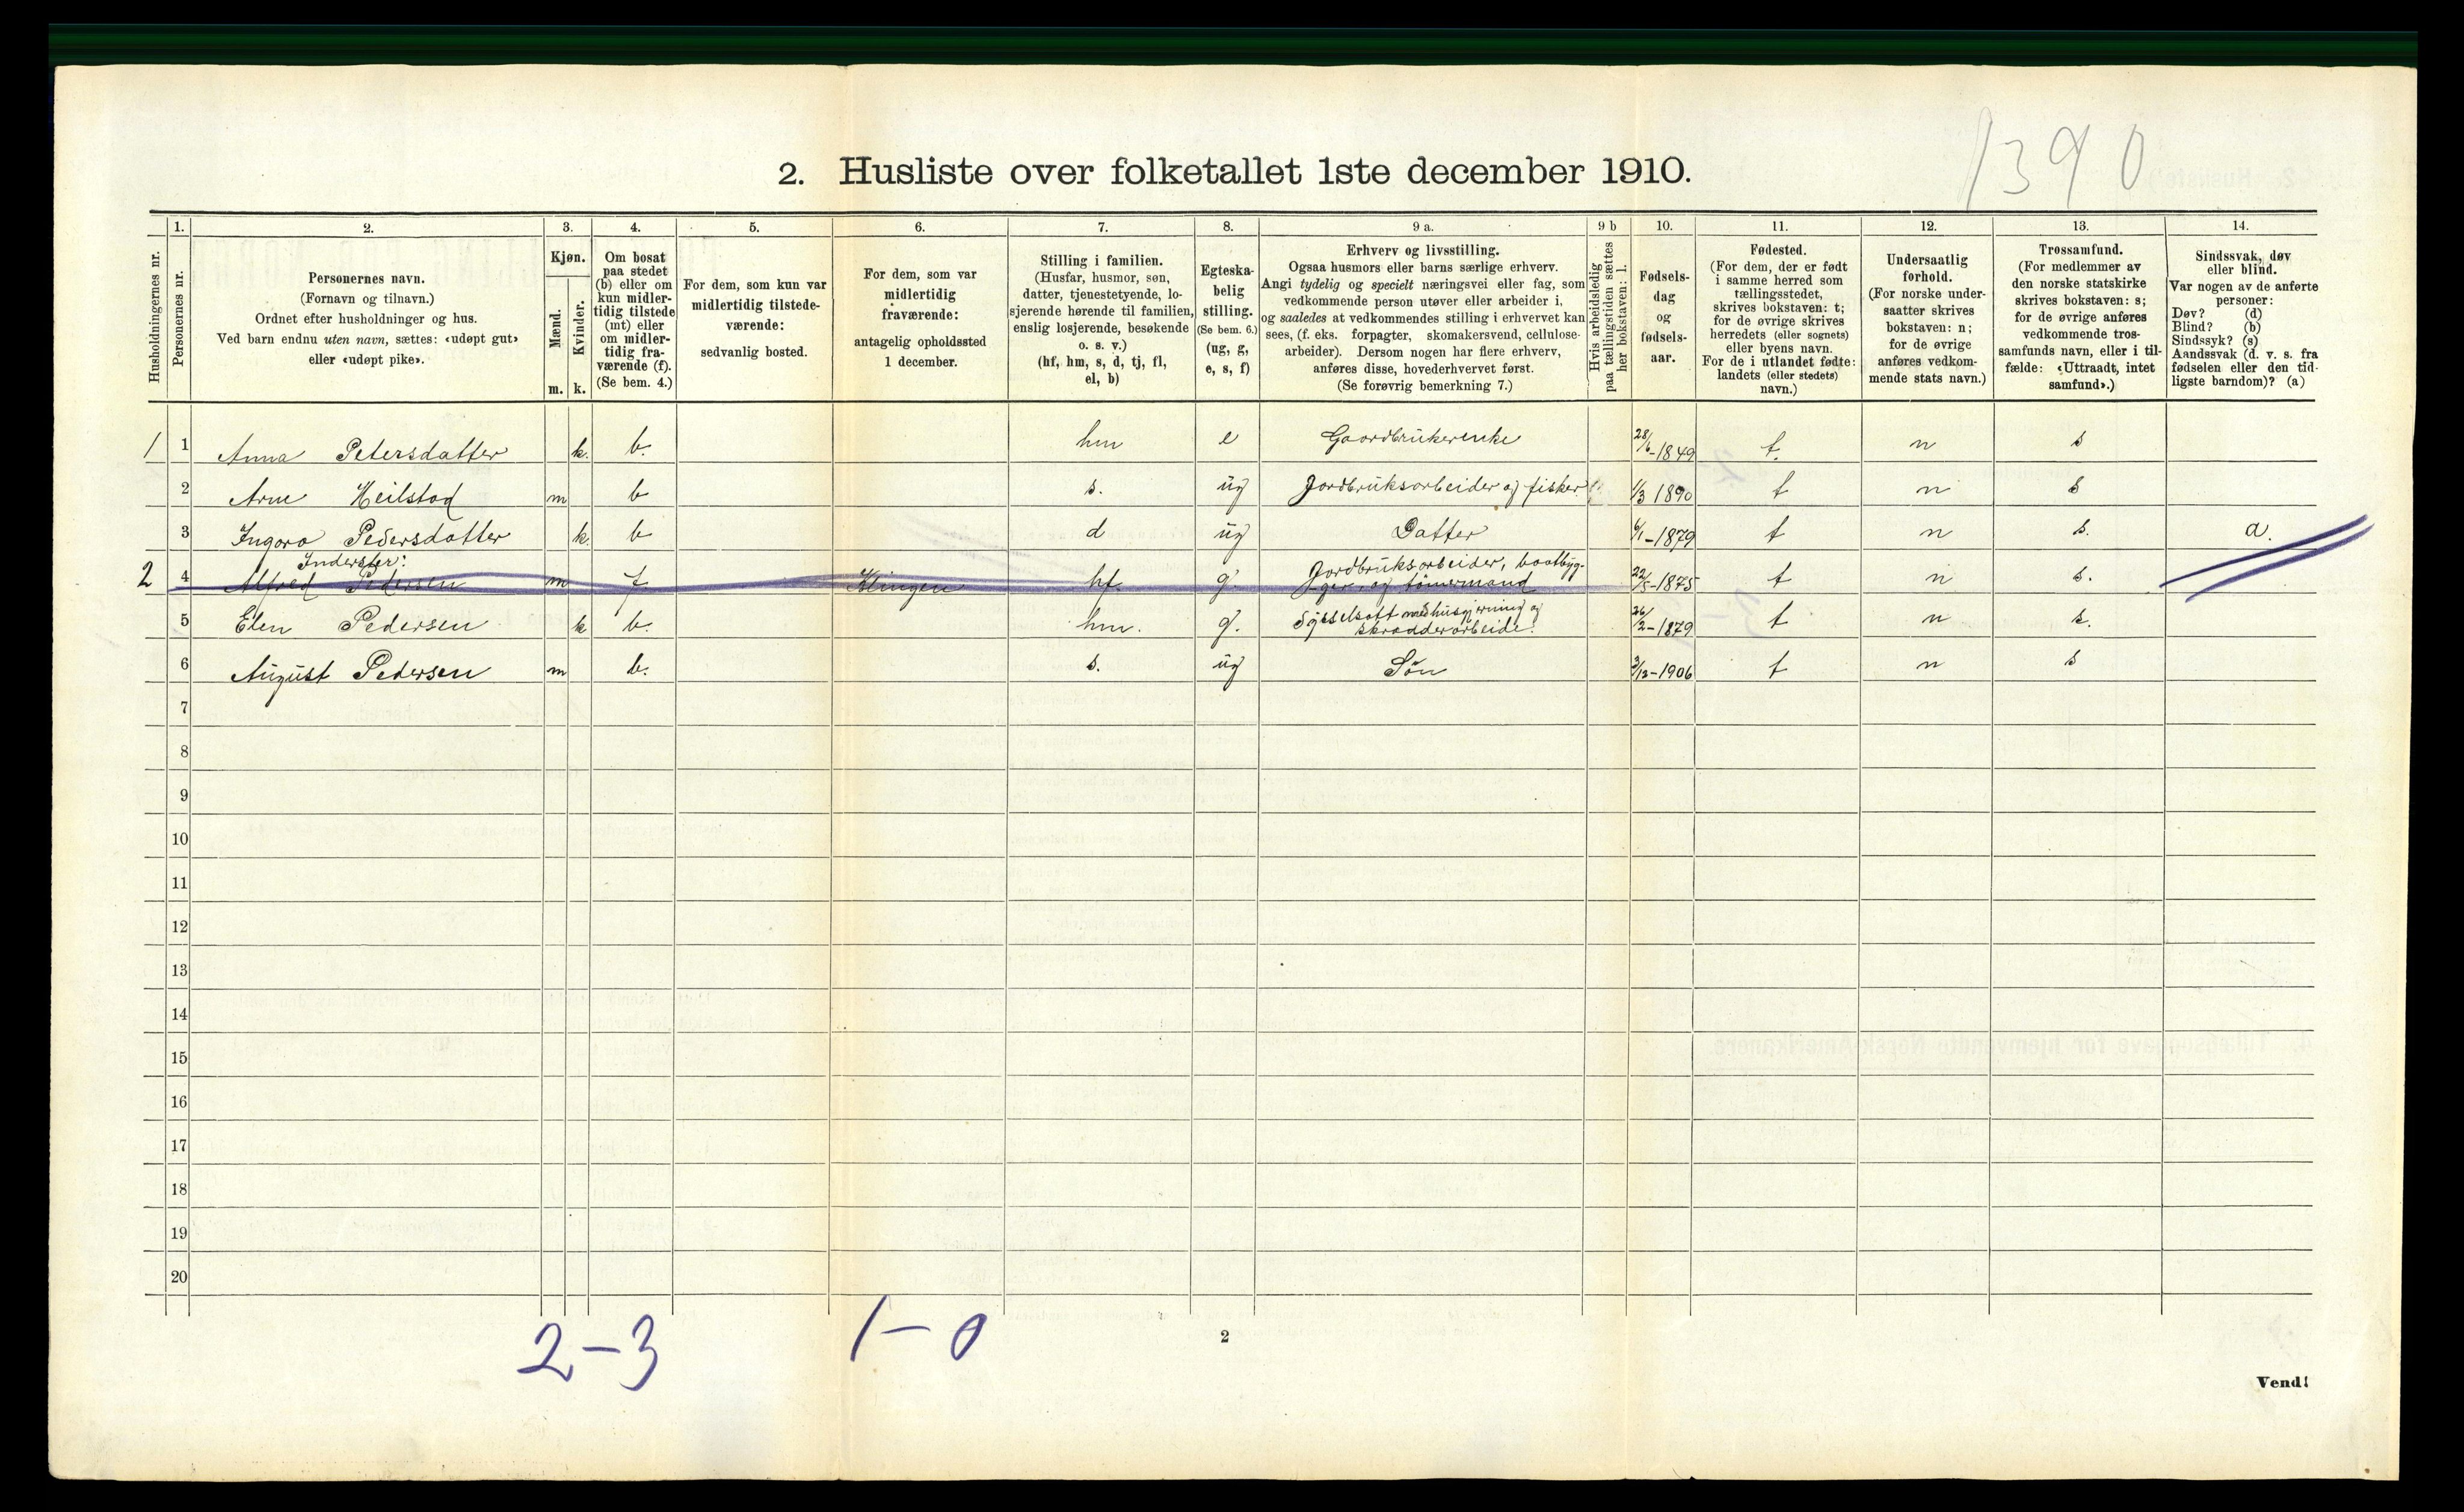 1390
2. Husliste over folketallet 1ste december 1910.
1. 2. 3. 4. 5. 6. 7. 8. 9 a. 9 b 10. 11. 12. 13. 14.
Husholdningernes nr.
Personernes nr.
Personernes navn.
(Fornavn og tilnavn.)
Ordnet efter husholdninger og hus.
Ved barn endnu uten navn, sættes: «udøpt gut»
eller «udøpt pike».
Kjøn.
Mænd.
Kvinder.
m. k.
Om bosat
paa stedet
(b) eller om
kun midler-
tidig tilstede
(mt) eller
om midler-
tidig fra-
værende (f).
(Se bem. 4.)
For dem, som kun var
midlertidig tilstede-
værende:
sedvanlig bosted.
For dem, som var
midlertidig
fraværende:
antagelig opholdssted
1 december.
Stilling i familien.
(Husfar, husmor, søn,
datter, tjenestetyende, lo-
sjerende hørende til familien,
enslig losjerende, besøkende
o. s. v.)
(hf, hm, s, d, tj, fl,
el, b)
Egteska-
belig
stilling.
(Se bem. 6.)
(ug, g,
e, s, f)
Erhverv og livsstilling.
Ogsaa husmors eller barns særlige erhverv.
Angi tydelig og specielt næringsvei eller fag, som
vedkommende person utøver eller arbeider i,
og saaledes at vedkommendes stilling i erhvervet kan
sees, (f. eks. forpagter, skomakersvend, cellulose-
arbeider). Dersom nogen har flere erhverv,
anføres disse, hovederhvervet først.
(Se forøvrig bemerkning 7.)
Hvis arbeidsledig
paa tællingstiden sættes
her bokstaven: l.
Fødsels-
dag
og
fødsels-
aar.
Fødested.
(For dem, der er født
i samme herred som
tællingsstedet,
skrives bokstaven: t;
for de øvrige skrives
herredets (eller sognets)
eller byens navn.
For de i utlandet fødte:
landets (eller stedets)
navn.)
Undersaatlig
forhold.
(For norske under-
saatter skrives
bokstaven: n;
for de øvrige
anføres vedkom-
mende stats navn.)
Trossamfund.
(For medlemmer av
den norske statskirke
skrives bokstaven: s;
for de øvrige anføres
vedkommende tros-
samfunds navn, eller i til-
fælde: «Uttraadt, intet
samfund».)
Sindssvak, døv
eller blind.
Var nogen av de anførte
personer:
Døv? (d)
Blind? (b)
Sindssyk? (s)
Aandssvak (d. v. s. fra
fødselen eller den tid-
ligste barndom)? (a)
1 1 Anna Petersdatter k. b. hm e Gaardbrukerenke 28/6-1849 t. n s
2 Arne Heilstad m b s. ug Jordbruksarbeider og fisker 1/3 1890 t n s
3 Ingara Pedersdatter k. b d ug Datter 6/1-1879 t n s. a.
Inderster:
2 4 Alfred Pedersen m f. Klingen hf. g. Jordbruksarbeider, baatbyg-
ger og tømermand 22/5-1875 t n s.
5 Elen Pedersen k b. hm. g. Sysselsatt med husgjerning og
skrædderarbeide. 26/2-1879 t n s.
6 August Pedersen m b. s. ug Søn 3/12-1906 t n s
7
8
9
10
11
12
13
14
15
16
17
18
19
20
2-3 1-0
2
Vend!